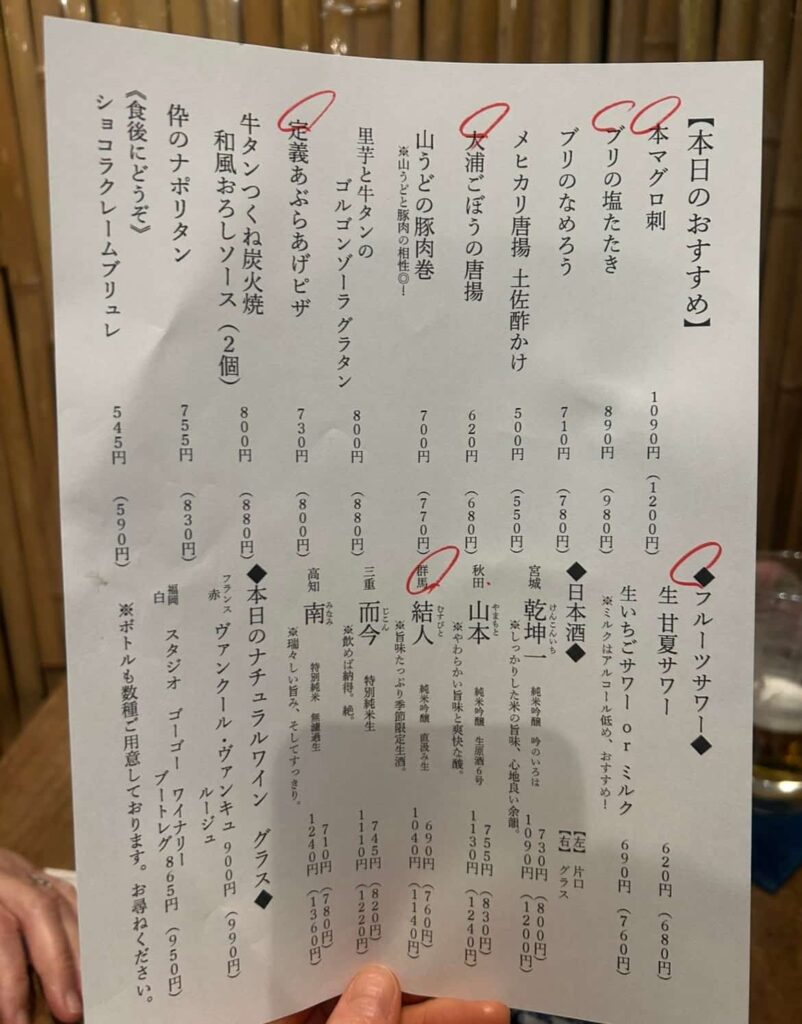 【本日のおすすめ】
本マグロ刺 1090円（1200円）
ブリの塩たたき 890円（980円）
ブリのなめろう 710円（780円）
メヒカリ唐揚 土佐酢かけ 500円（550円）
大浦ごぼうの唐揚 620円（680円）
山うどの豚肉巻 700円（770円）
※山うどと豚肉の相性◎！
里芋と牛タンの
ゴルゴンゾーラ グラタン 800円（880円）
定義あぶらあげピザ 730円（800円）
牛タンつくね炭火焼
和風おろしソース（2個） 800円（880円）
倅のナポリタン 755円（830円）
《食後にどうぞ》
ショコラクレームブリュレ 545円（590円）
◆フルーツサワー◆
生 甘夏サワー 620円（680円）
生いちごサワー or ミルク 690円（760円）
※ミルクはアルコール低め、おすすめ！
◆日本酒◆
【左】片口
【右】グラス
宮城 乾坤一 けんこんいち 純米吟醸 吟のいろは 730円（800円）
1090円（1200円）
※しっかりした米の旨味、心地良い余韻。
秋田 山本 やまもと 純米吟醸 生原酒6号 755円（830円）
1130円（1240円）
※やわらかい旨味と爽快な酸。
群馬 結人 むすびと 純米吟醸 直汲み生 690円（760円）
1040円（1140円）
※旨味たっぷり季節限定生酒。
三重 而今 じこん 特別純米生 745円（820円）
1110円（1220円）
※飲めば納得。絶。
高知 南 みなみ 特別純米 無濾過生 710円（780円）
1240円（1360円）
※瑞々しい旨み、そしてすっきり。
◆本日のナチュラルワイン グラス◆
フランス 赤 ヴァンクール・ヴァンキュ
ルージュ 900円（990円）
福岡 白 スタジオ ゴーゴー ワイナリー
ブートレグ 865円（950円）
※ボトルも数種ご用意しております。お尋ねください。